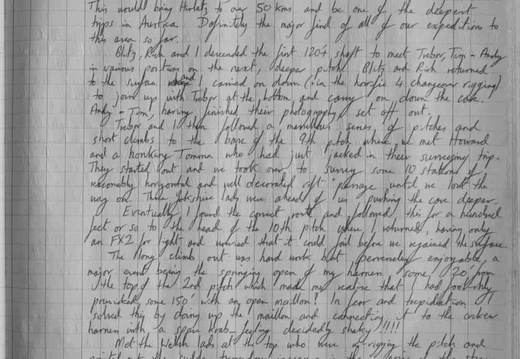 This would bring Hirlatz to over 50 kms and be one of the deepest
trips in Austria. Definitely the major find of all of our expeditions to
this area so far.
Blitz, Rich and I descended the first 120ft shaft to meet Tim Andy
in various positions on the next, deeper pitch. Blitz and Rich returned
to the surface and I carried on down (via the horrific 4 changeover rigging)
to join up with at the bottom and carry on down the cave.
Andy Tom, having finished their photography set off out.
and I then followed a marvellous series of pitches and
short climbs to the base of the 9th pitch where we met Howard
and a honking who had just jacked in their surveying trip.
They started out and we took over to survey some 10 stations of
reasonably horizontal and well decorated rift passage until we lost the
way on. Three Yorkshire lads were ahead of us pushing the cave deeper.
Eventually I found the correct route and followed this for a hundred
feet or so to the head of the 10th pitch where I returned, having only
an FX2 for light and worried that it could fail before we regained the surface.
The long climb out was hard work but perversely enjoyable, a
major event being the springing open of my harness some 70' from
the top of the 2nd pitch which made my realise that I had foolishly
prusicked some 150' with an open maillon! In fear and trepidation I
solved this by doing up the maillon and connecting it to the
harness with a spare krab feeling decidedly shaky!!!!
Met the Welsh lads at the top who were rigging the pitch and